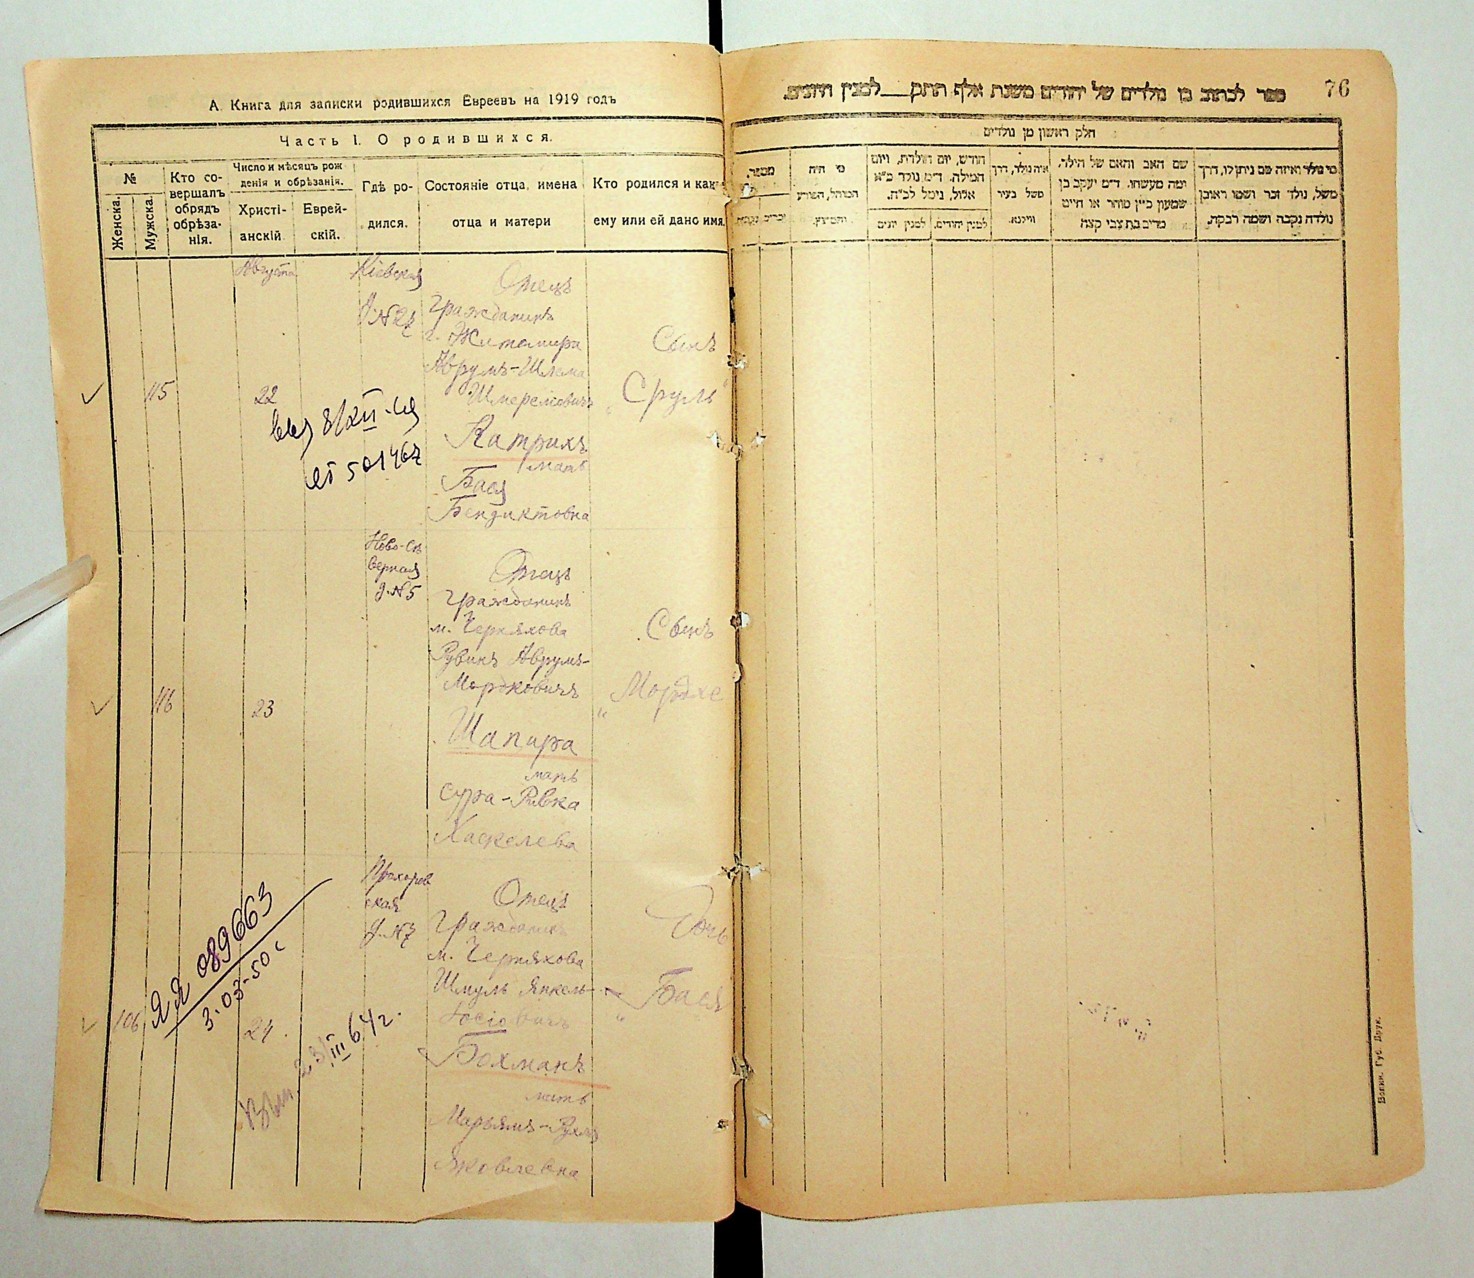 А. Книга для записки родившихся Евреевъ на 1919 годъ
Часть I. О родившихся.
№
Женска.
Мужска.
Кто со-
вершалъ
обрядъ
обрѣза-
нія.
Число и мѣсяцъ рож
денія и обрѣзанія.
Христі-
анскій
Еврей-
скій.
Гдѣ ро-
дился.
Состояніе отца, имена
отца и матери
Кто родился и как
ему или ей дано имя.
115
Августа
22
Кіевская
Отецъ
Гражданинъ
г. Житомира
Аврумъ-Шлема
Шмереловичъ
Катрихъ
мать
Бася
Бендиктовна
Сынъ
„Сруль“
501467
116
23
Ново-Сѣ
верная
д. №5
Отецъ
Гражданинъ
м. Черняхова
Рувинъ Аврумъ-
Мордковичъ
Шапира
мать
Сура-Ривка
Хаскелева
Сынъ
„Мордхе
106
24.
Прохоров
ская
д. №7
Отецъ
Гражданинъ
м. Черняхова
Шмуль Янкель-
Іосіовичъ
Бохманъ
мать
Марьямъ-Рухля
Яковлевна
Дочь
„Бася
ЯЯ 089663
3-03-50 г
23/III 64г.
76
ספר לכתוב בו נולדים של יהודים משנת אלף תתק___למנין היונים.
חלק ראשון מן נולדים
מי נולד ואיזה שם ניתן לו, דרך
משל, נולד זכר ושמו ראובן
נולדה נקבה ושמה רבקה.
שם האב והאם של הילד.
ומה מעשהו. ד״מ יעקב בן
שמעון כ״ץ סוחר או חייט
מרים בת צבי קצה
איה נולד, דרך
משל בעיר
ווילנא.
חודש, יום הולדת, ויום
המילה. ד״מ נולד כ״א
אלול, נימל לכ״ח.
למנין יהודים.
למנין יונים
מי היה
המוהל, הפורע
והמוצץ.
מספר.
זכרים
נקבות
Воєнн. Губ. Друк.